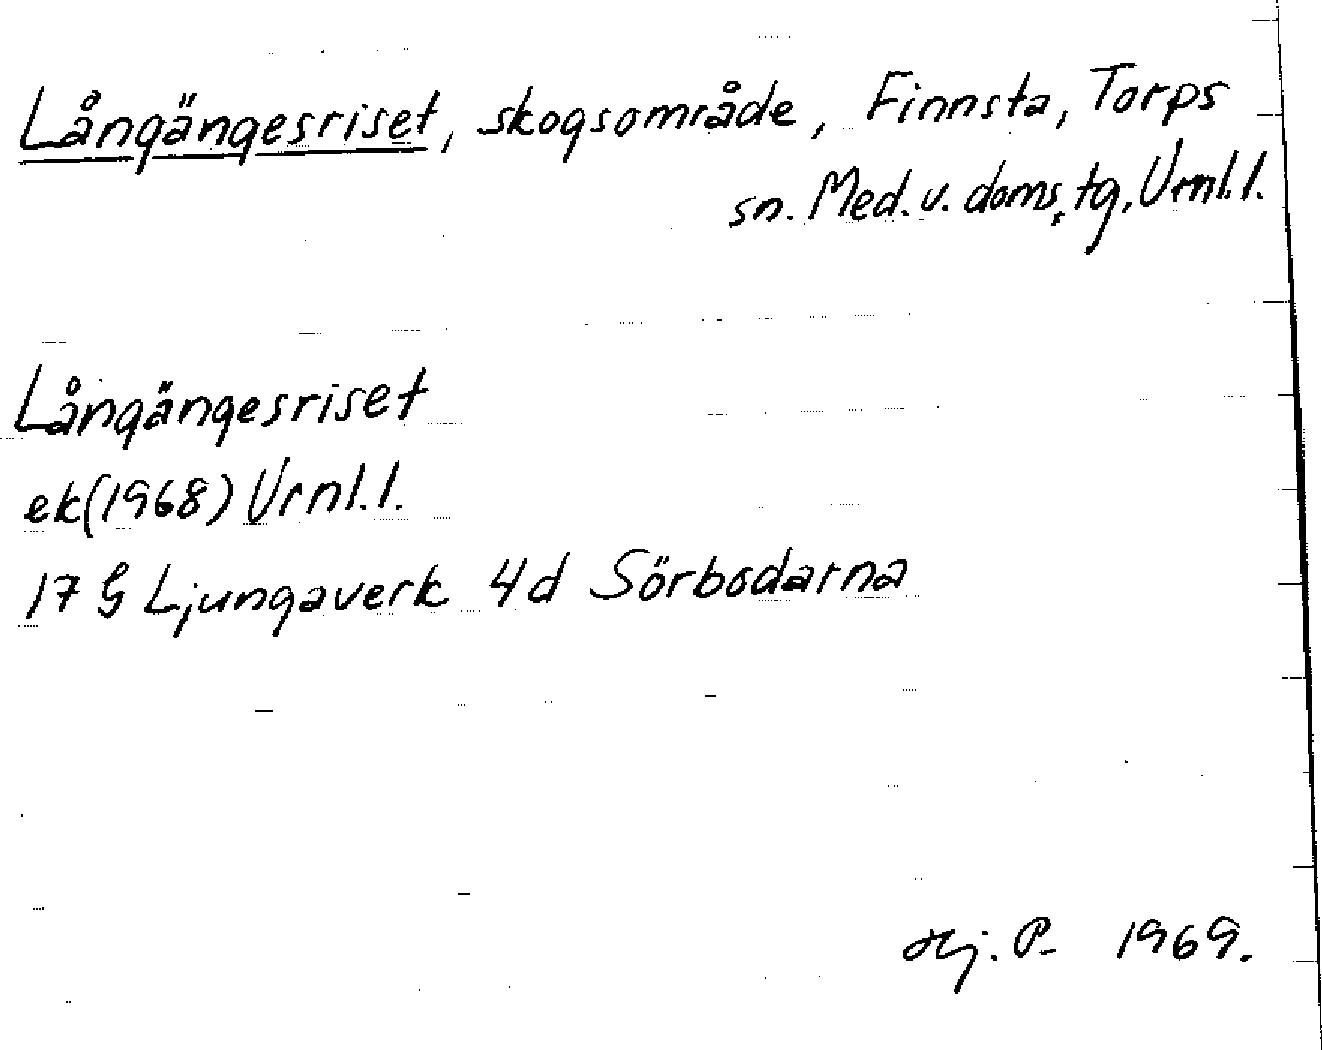 Långängesriset, skogsområde, Finnsta, Torps
sn. Med. v. doms. tg, Vrnl. l.
Långängesriset
ek (1968) Vrnl. l.
17 G Ljungaverk 4d Sörbodarna
Hj. P. 1969.